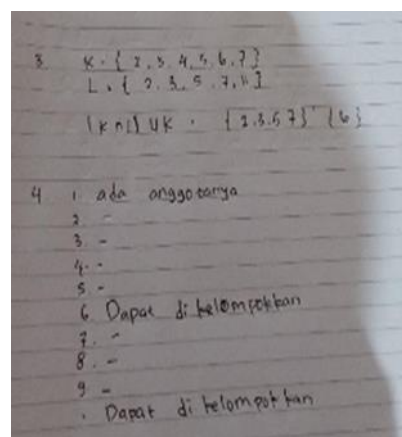 3 K = { 2, 3, 4, 5, 6, 7 }
L = { 2, 3, 5, 7, 11 }
(K ∩ L) U K = { 2.3.5 7 } { 6 }
4 1. ada anggotanya
2. -
3. -
4. -
5. -
6. Dapat di kelompokkan
7. -
8. -
9 -
. Dapat di kelompokkan